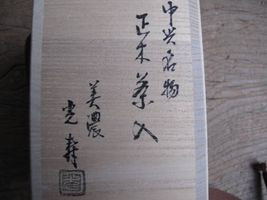 中兴名物
正木茶入
美濃
光寿